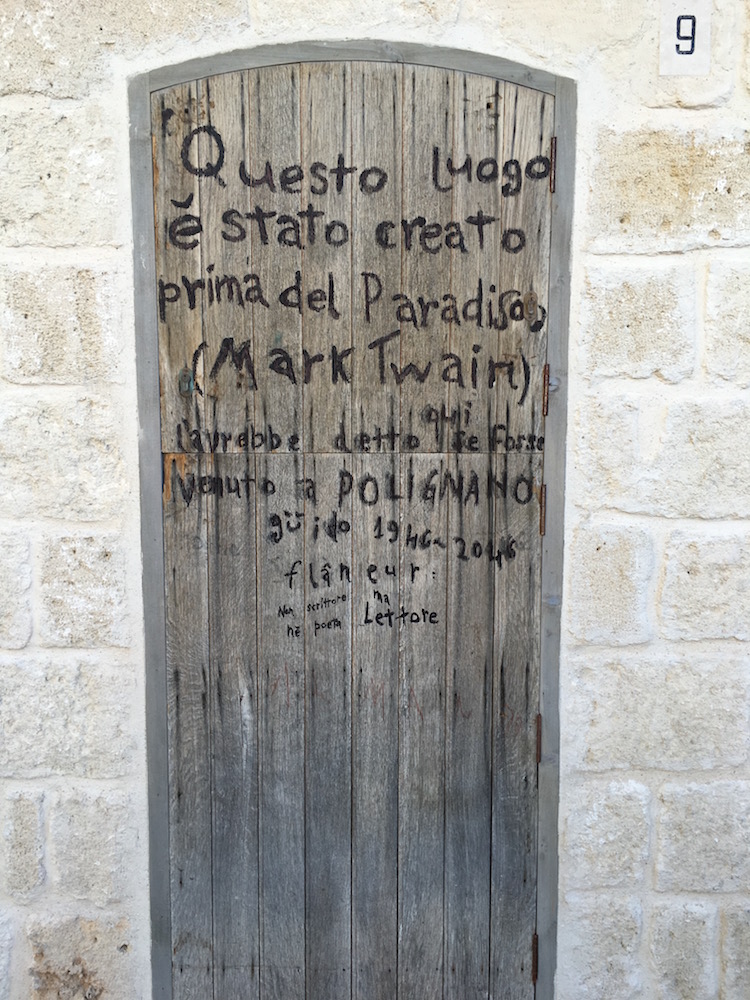 9
Questo luogo
è stato creato
prima del Paradiso,
(Mark Twain)
qui
l'avrebbe detto se fosse
venuto a POLIGNANO
güido 1946~2046
flâneur:
Non scrittore ma
nè poeta Lettore